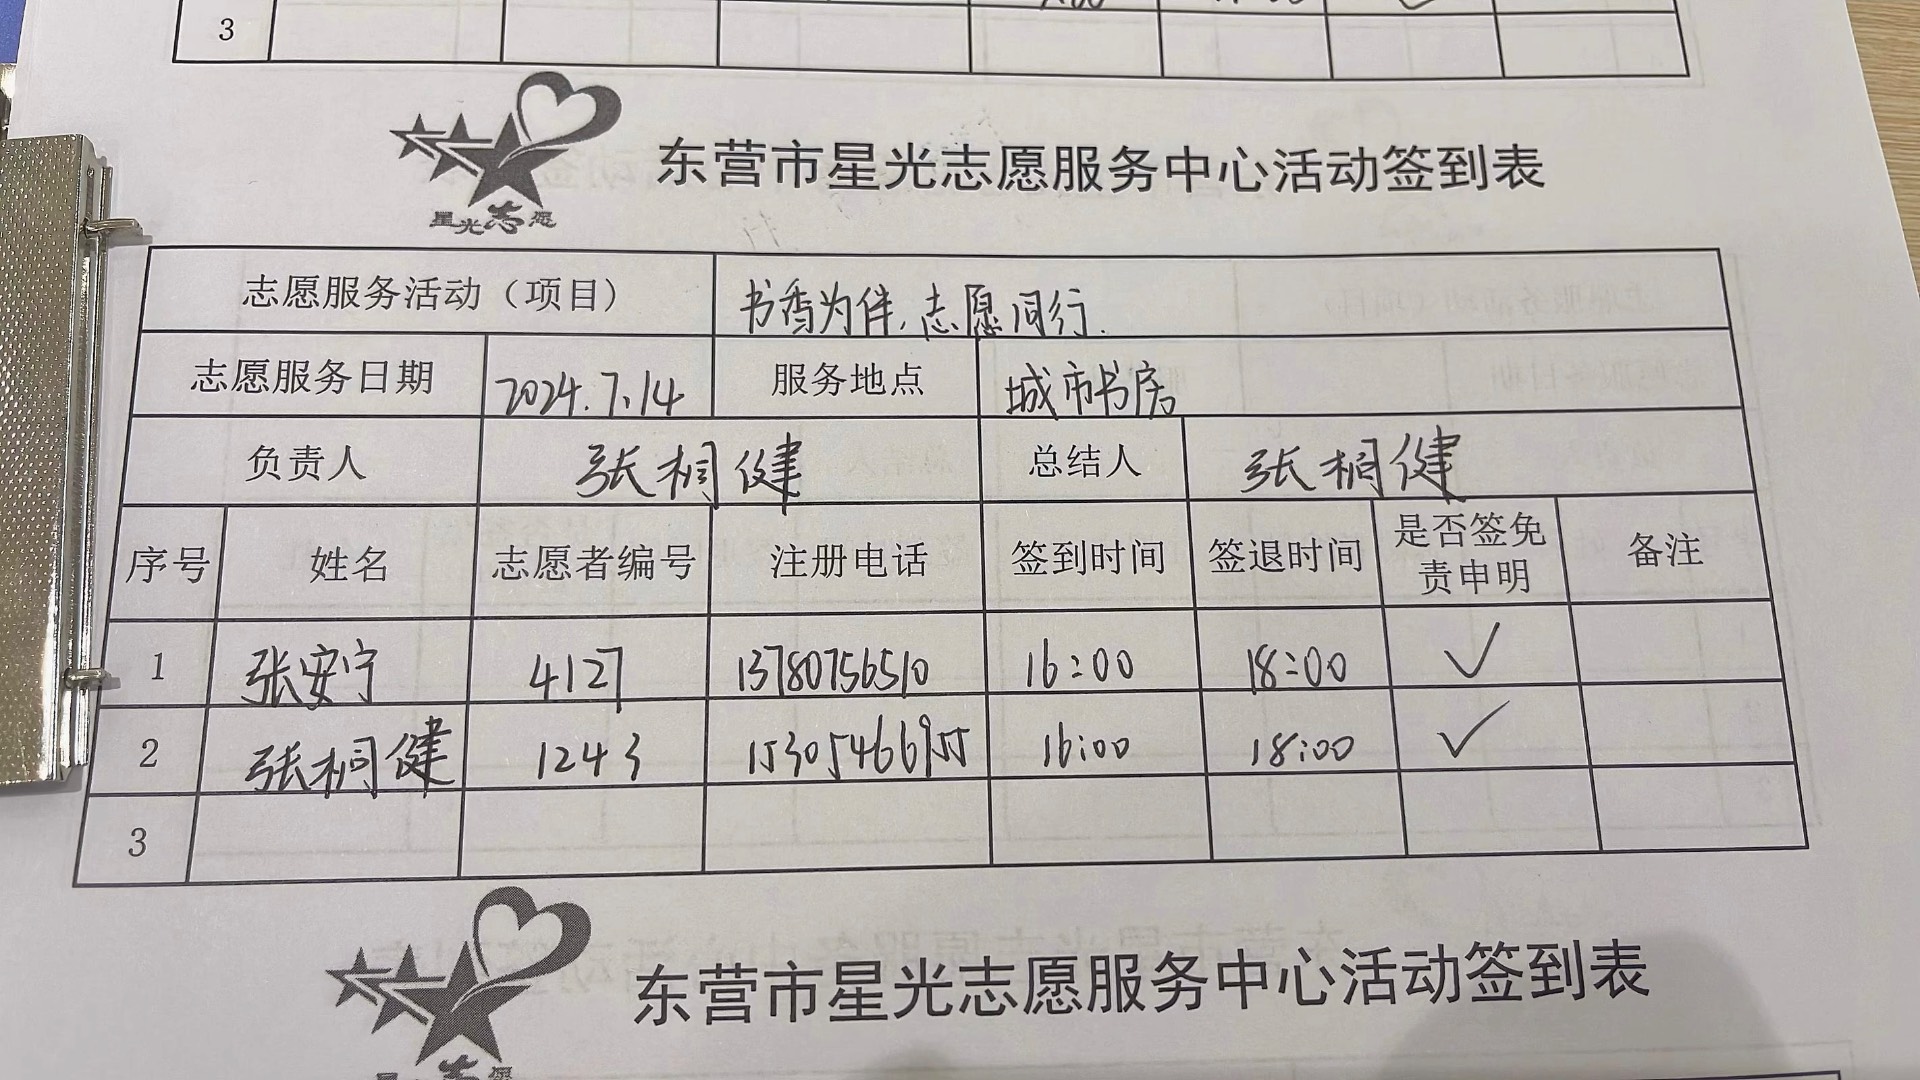 3
星光志愿
东营市星光志愿服务中心活动签到表
志愿服务活动（项目） 书香为伴,志愿同行.
志愿服务日期 2024.7.14 服务地点 城市书房
负责人 张桐健 总结人 张桐健
序号 姓名 志愿者编号 注册电话 签到时间 签退时间 是否签免责申明 备注
1 张安宁 4127 13780756510 16:00 18:00 ✓
2 张桐健 1243 15305466955 16:00 18:00 ✓
3
东营市星光志愿服务中心活动签到表